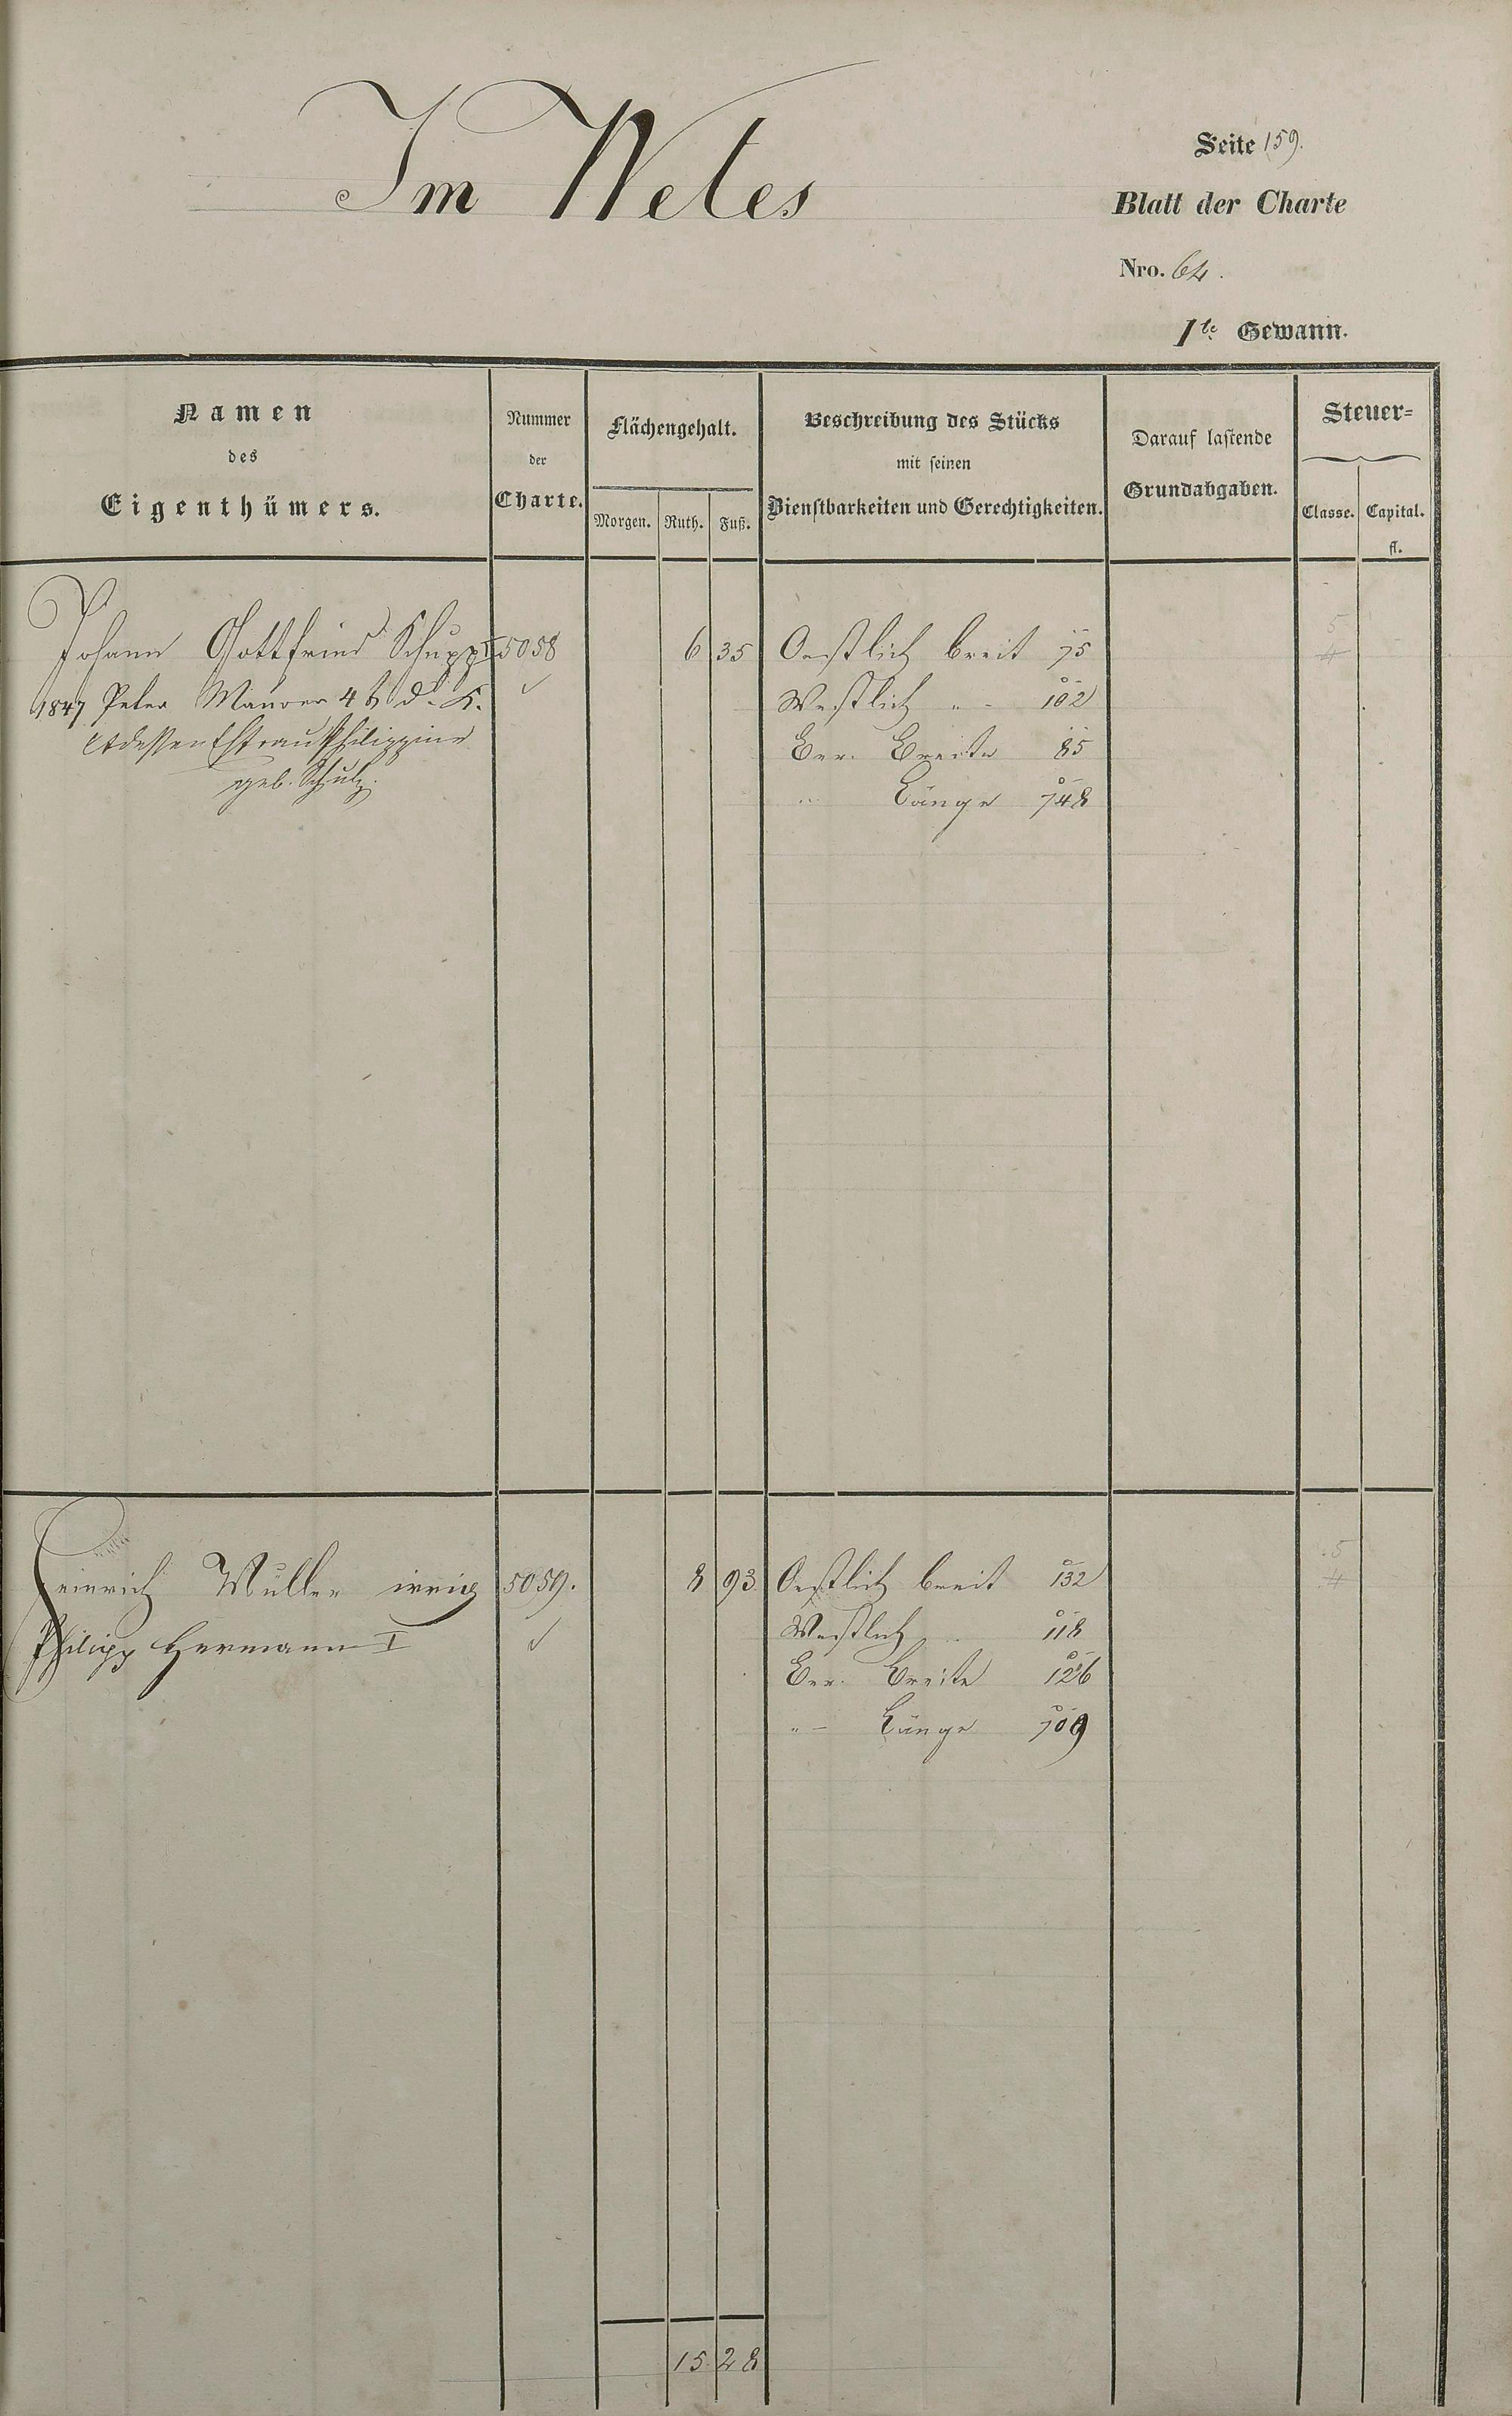 Im Wetes
Seite 159.
Blatt der Charte
Nro. 64.
1te Gewann.
Namen
des
Eigenthümers.
Nummer
der
Charte.
Flächengehalt.
Morgen. Ruth. Fuß.
Beschreibung des Stücks
mit seinen
Dienstbarkeiten und Gerechtigkeiten.
Darauf lastende
Grundabgaben.
Steuer=
Classe. Capital.
fl.
Johann Gottfried Schupp II 5058 6 35 Oestlich breit 75 5
1847 Peter Maurer 4t d. K. ✓ Westlich " - 102 4
et dessen Ehefrau Philippine Ver. Breite 85
geb. Schulz. " Länge 748
Heinrich Müller irrig 5059. 8 93 Oestlich breit 132 5
Philipp Hermann I ✓ Westlich " 118 4
Ver. Breite 126
" - Länge 709
15 28